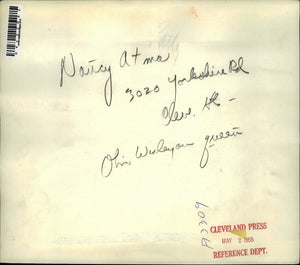 Nancy Atma
3020 Yorkshire Rd
Cleve. Hts -
Ohio Wesleyan queen
CLEVELAND PRESS
MAY 2 1955
REFERENCE DEPT.